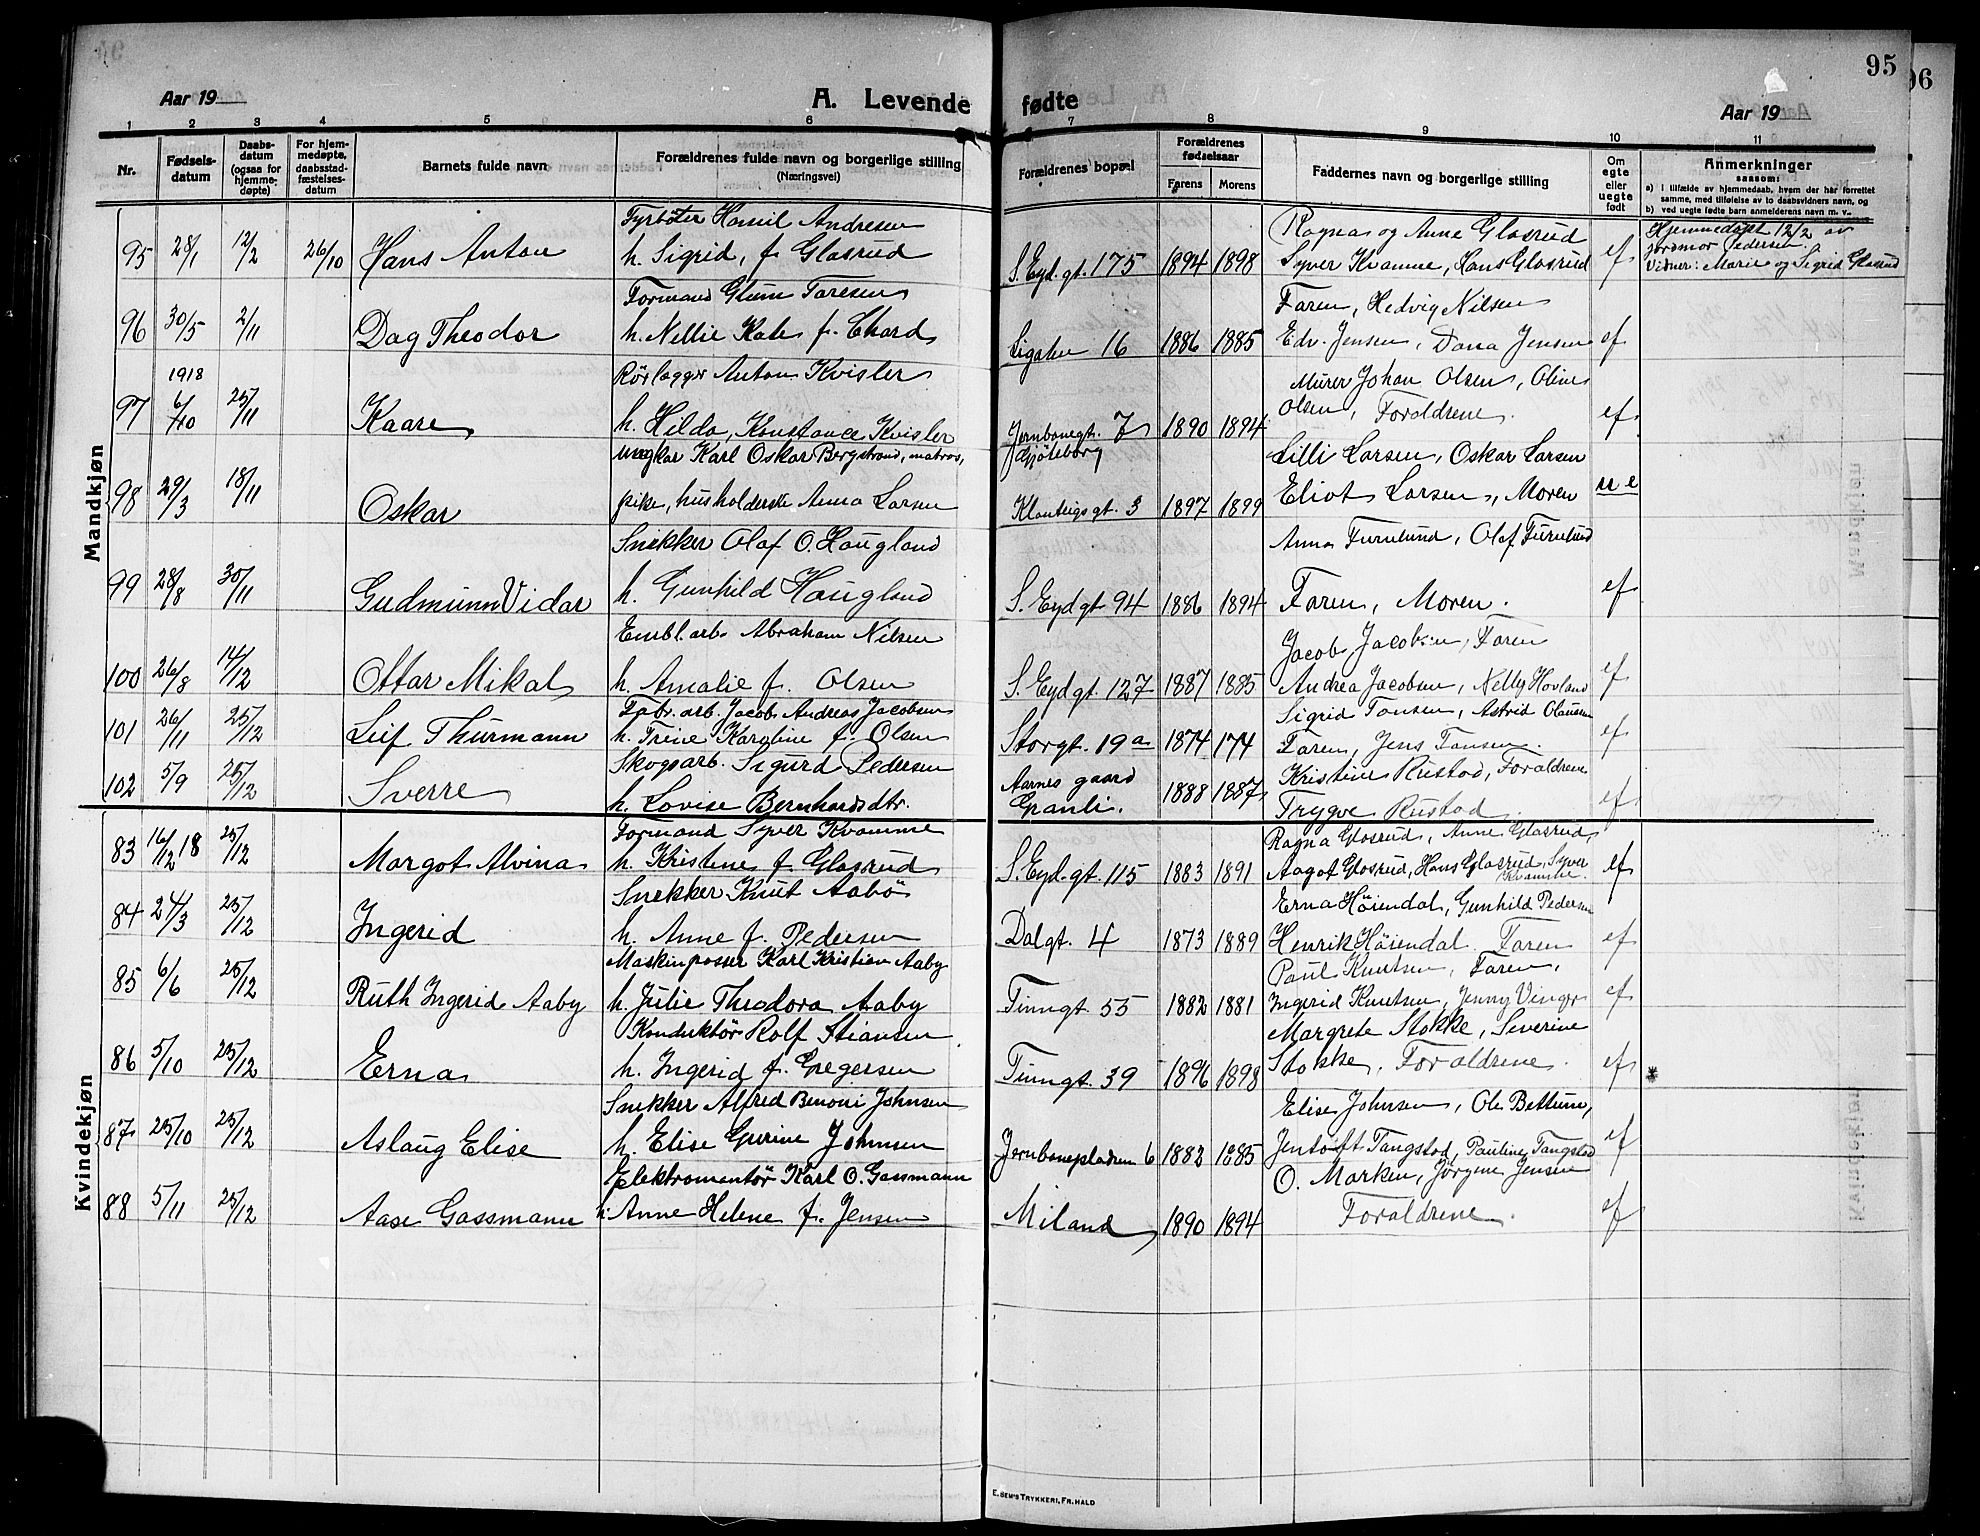 95
96
Aar 19
A. Levende fødte
Aar 19
1 2 3 4 5 6 7 8 9 10 11
Nr.
Fødsels-
datum
Daabs-
datum
(ogsaa for
hjemme-
døpte)
For hjem-
medøpte,
daabsstad-
fæstelses-
datum
Barnets fulde navn
Forældrenes fulde navn og borgerlige stilling
(Næringsvei)
Forældrenes bopæl
Forældrenes
fødselsaar
Farens Morens
Faddernes navn og borgerlige stilling
Om
egte
eller
uegte
født
Anmerkninger
saasom:
a) i tilfælde av hjemmedaab, hvem der har forrettet
samme, med tilføielse av to daabsvidners navn, og
b) ved uegte fødte barn anmelderens navn m. v.
Mandkjøn
Fyrbøter Andresen Ragna og Anne Glasrud Hjemmedøpt 12/2 av
95 28/1 12/2 26/10 Hans Anton h. Sigrid, f. Glasrud S. Eyd. gt. 175 1894 1898 Syver Kvamme, Hans Glasrud ef jordmor Pedersen.
Vidner: Marie og Sigrid Glasrud
Formand Glum Taresen Faren, Hedvig Nilsen
96 30/5 2/11 Dag Theodor h. Nellie Kate f. Chard 16 1886 1885 Edv. Jensen, Dana Jensen ef
1918 Rörlægger Anton Kvisler Murer Johan Olsen, Oline
97 6/10 25/11 Kaare h. Hilda Konstance Kvisler Jernbanegt. 7 1890 1894 Olsen, Foraldrene. ef
ungkar Karl Oskar Bergstrand, matros, Gjøteborg Lilli Larsen, Oskar Larsen
98 29/3 18/11 Oskar pike, husholderske Anna Larsen 3 1897 1899 Eliot Larsen, Moren u e
Snekker Olaf O. Haugland Anna Furulund, Olaf Furulund
99 28/8 30/11 Gudmunn Vidar h. Gunhild Haugland S. Eyd gt 94 1886 1894 Faren, Moren. ef
Embl. arb. Abraham Nilsen Jacob Jacobsen, Faren
100 26/8 14/12 Ottar Mikal h. Amalie f. Olsen S. Eyd gt. 127 1887 1885 Andrea Jacobsen, Nelly Hovland ef
Fabr. arb. Jacob Andreas Jacobsen Sigrid Tansen, Astrid Olausen
101 26/11 25/12 Leif Thurmann h. Trine Karoline f. Olsen Storgt. 19a 1874 174 Faren, Jens Tansen. ef
Skogsarb. Sigurd Pedersen Aarnes gaard Kristine Rustad, Foraldrene
102 5/9 25/12 Sverre h. Lovise Bernhardsdtr. Granli. 1888 1887 Trygve Rustad ef
Kvindekjøn
Formand Syver Kvamme Ragna Glasrud, Anne Glasrud,
83 16/12 18 25/12 Margot Alvina h. Kristine f. Glasrud S. Eyd. gt. 115 1883 1891 Aagot Glasrud, Hans Glasrud, Syver ef
Kvamme.
Snekker Knut Aabö Erna Höiendal, Gunhild Pedersen
84 24/3 25/12 Ingerid h. Anne f. Pedersen Dalgt. 4 1873 1889 Henrik Höiendal. Faren ef
Maskinpasser Karl Kristian Aaby Paul Knutsen, Faren,
85 6/6 25/12 Ruth Ingerid Aaby h. Julie Theodora Aaby Tinngt. 55 1882 1881 Ingerid Knutsen, Jenny Vinger ef
Konduktör Rolf Stiansen Margrete Stokke, Severine
86 5/10 25/12 Erna h. Ingerid f. Gregersen Tinngt. 39 1896 1898 Stokke, Foraldrene. ef
Snekker Alfred Benoni Johnsen Elise Johnsen, Ole Bettum,
87 25/10 25/12 Aslaug Elise h. Elise Gurine Johnsen Jernbanepladsen 6 1882 1885 Jentoft Tangstad, Pauline Tangstad ef
Elektromontör Karl O. Gassmann O. Marken, Jörgine Jensen
88 5/11 25/12 Aase Gassmann h. Anne Helene f. Jensen Miland 1890 1894 Foraldrene. ef
E. SEM'S TRYKKERI, FR.HALD